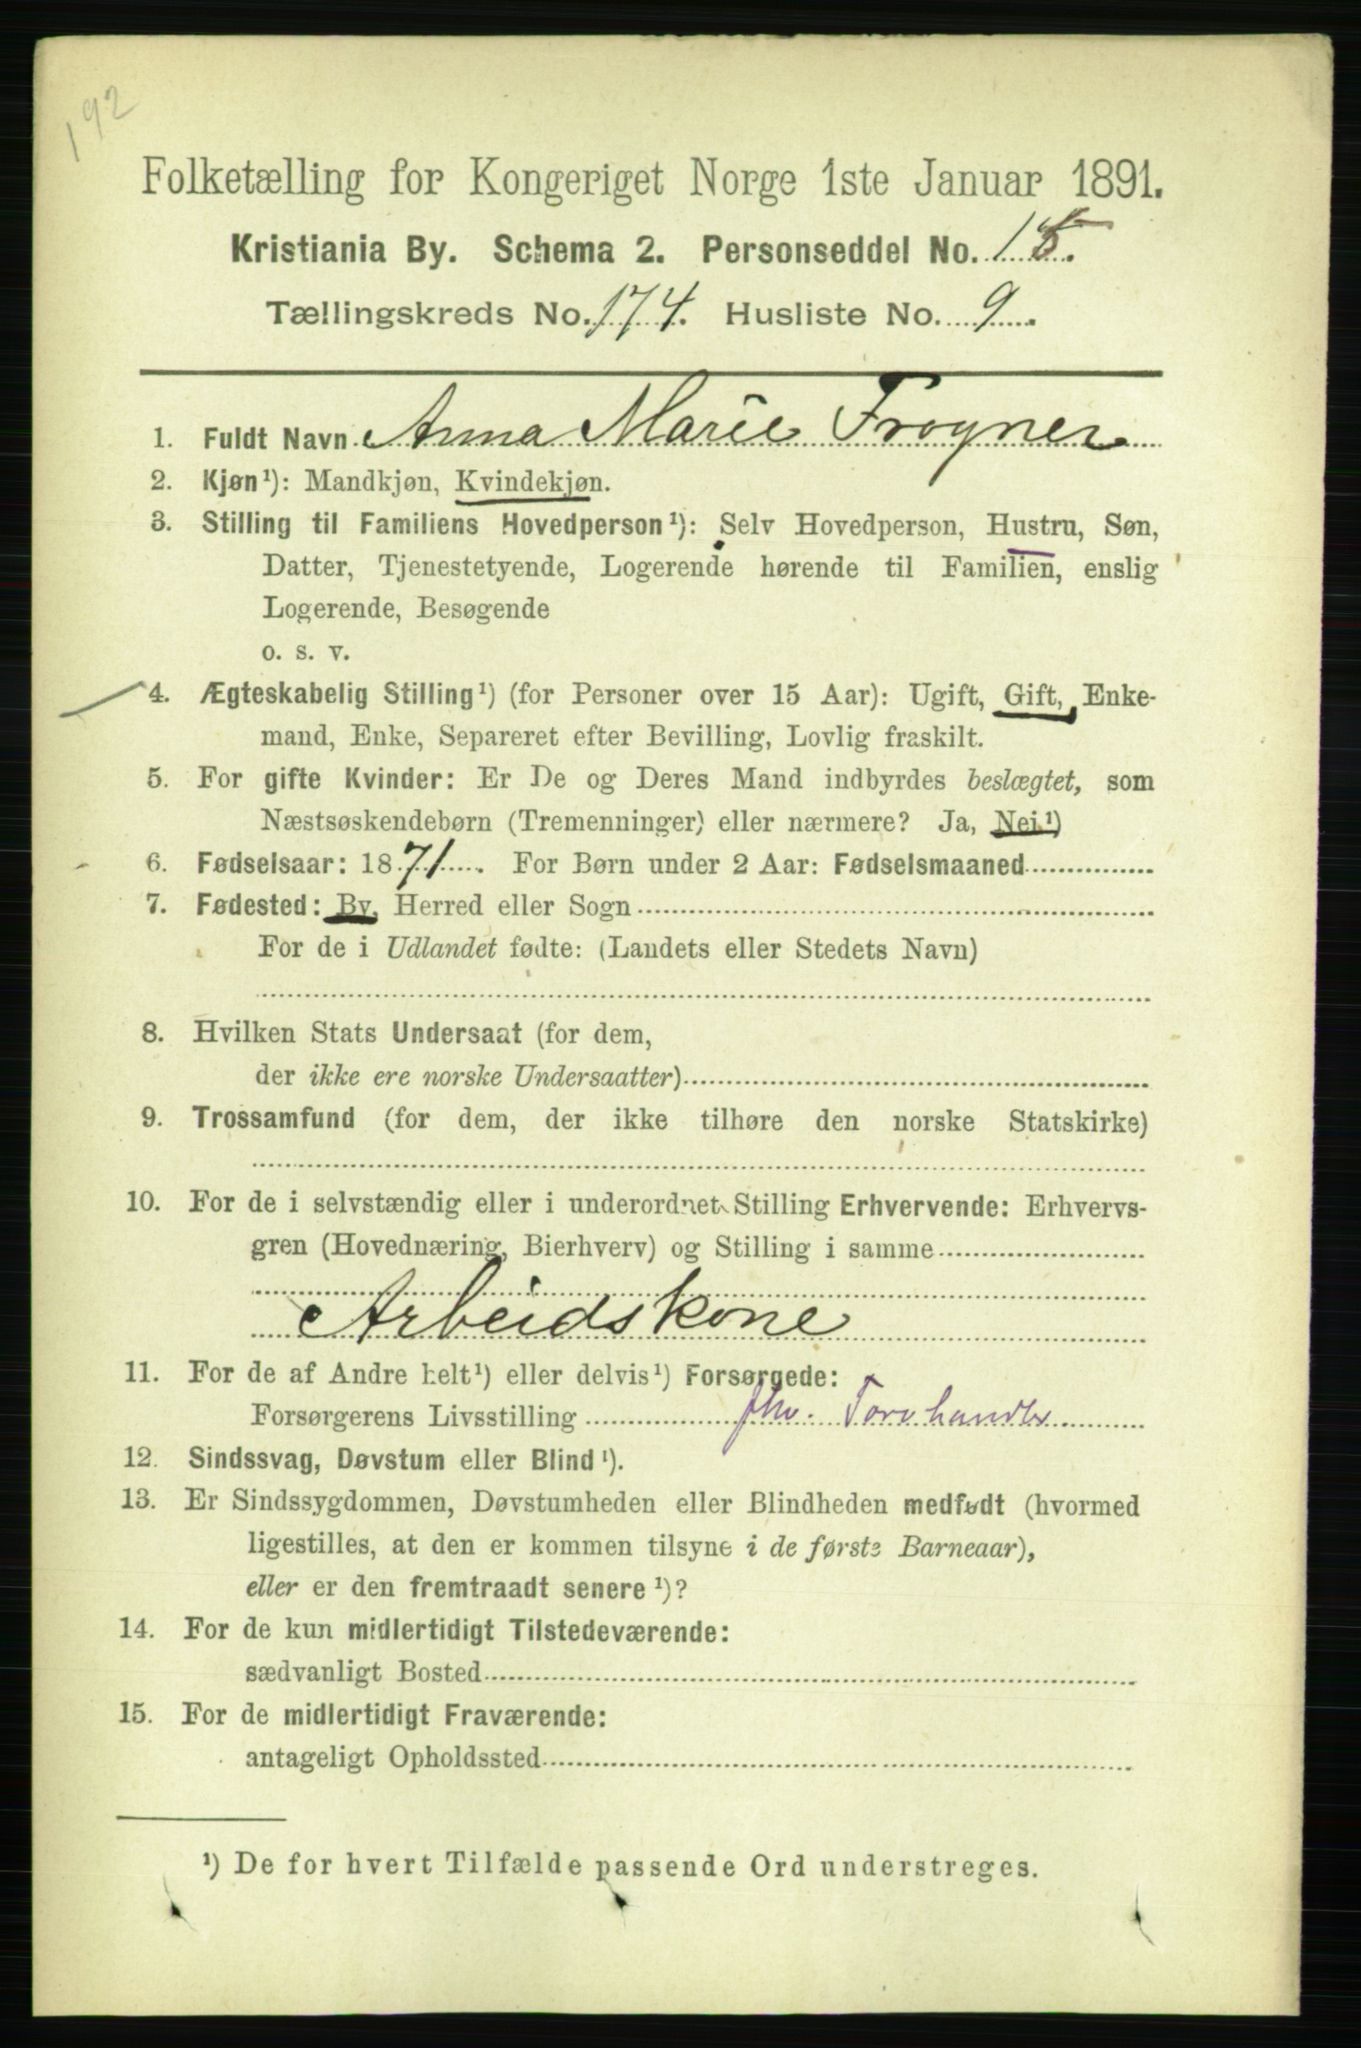 192
Folketælling for Kongeriget Norge 1ste Januar 1891.
Kristiania By. Schema 2. Personseddel No. 15.
Tællingskreds No. 174. Husliste No. 9.
1. Fuldt Navn Anna Marie Frogner
2. Kjøn¹): Mandkjøn, Kvindekjøn.
3. Stilling til Familiens Hovedperson¹): Selv Hovedperson, Hustru, Søn,
Datter, Tjenestetyende, Logerende hørende til Familien, enslig
Logerende, Besøgende
o. s. v.
4. Ægteskabelig Stilling¹) (for Personer over 15 Aar): Ugift, Gift, Enke-
mand, Enke, Separeret efter Bevilling, Lovlig fraskilt.
5. For gifte Kvinder: Er De og Deres Mand indbyrdes beslægtet, som
Næstsøskendebørn (Tremenninger) eller nærmere? Ja, Nei.¹)
6. Fødselsaar: 1871. For Børn under 2 Aar: Fødselsmaaned
7. Fødested: By, Herred eller Sogn
For de i Udlandet fødte: (Landets eller Stedets Navn)
8. Hvilken Stats Undersaat (for dem,
der ikke ere norske Undersaatter)
9. Trossamfund (for dem, der ikke tilhøre den norske Statskirke)
10. For de i selvstændig eller i underordnet Stilling Erhvervende: Erhvervs-
gren (Hovednæring, Bierhverv) og Stilling i samme
Arbeidskone
11. For de af Andre helt¹) eller delvis¹) Forsørgede:
Forsørgerens Livsstilling Torvhandler
12. Sindssvag, Døvstum eller Blind¹).
13. Er Sindssygdommen, Døvstumheden eller Blindheden medfødt (hvormed
ligestilles, at den er kommen tilsyne i de første Barneaar),
eller er den fremtraadt senere¹)?
14. For de kun midlertidigt Tilstedeværende:
sædvanligt Bosted
15. For de midlertidigt Fraværende:
antageligt Opholdssted
¹) De for hvert Tilfælde passende Ord understreges.